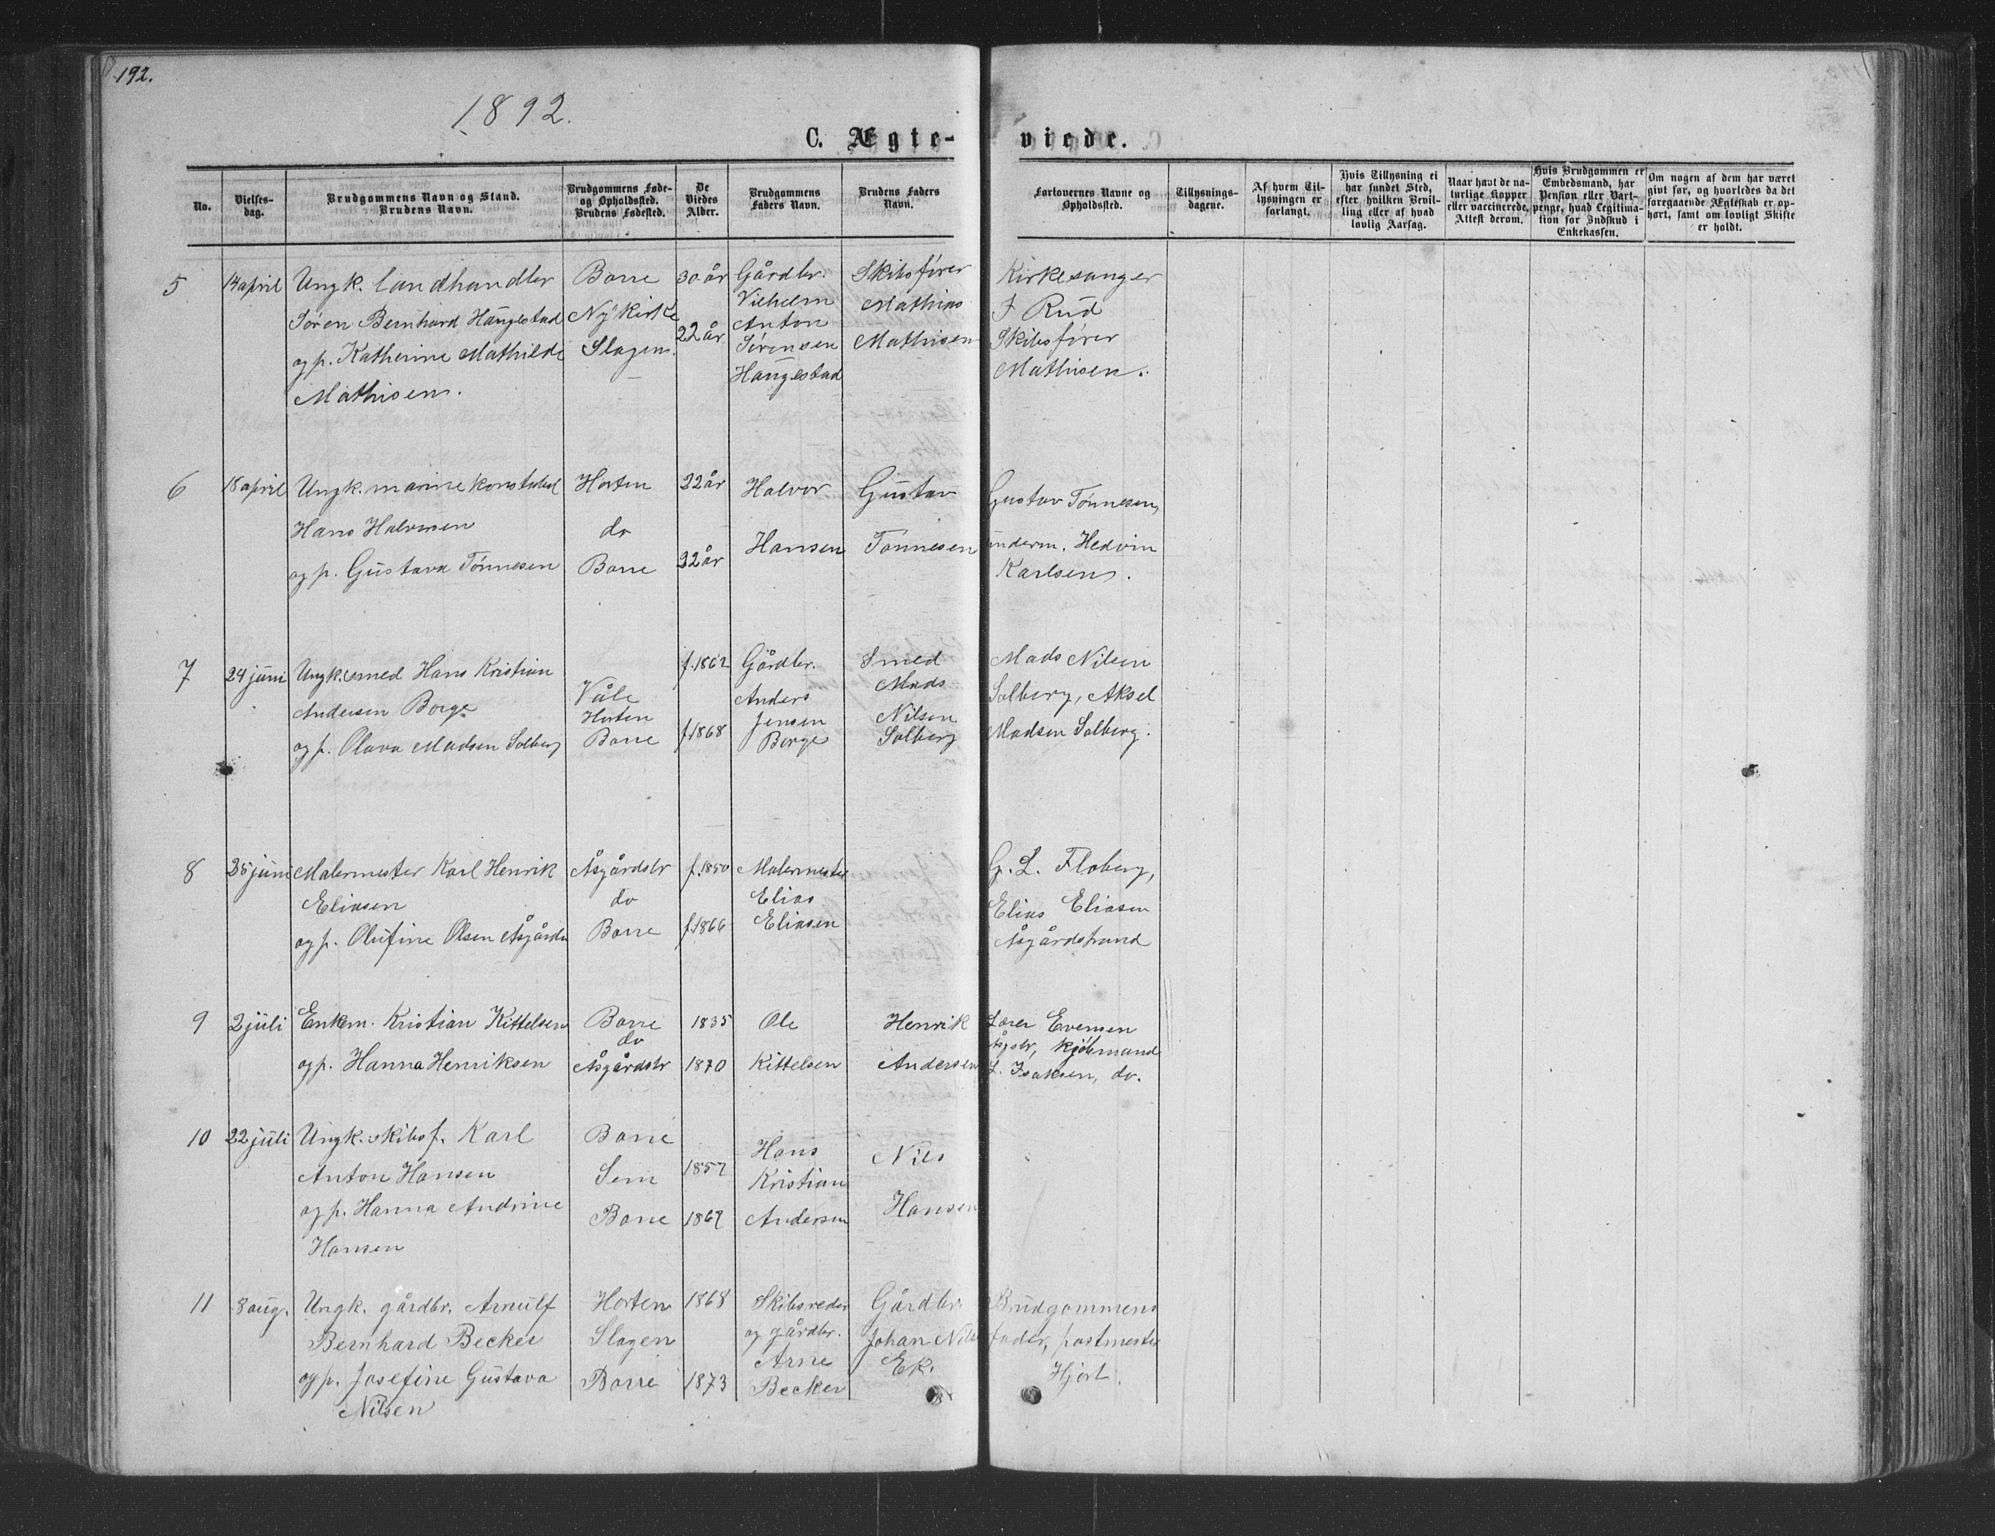 192.
1892.
C. Ægte-
viede.
No.
Vielses-
dag.
Brudgommens Navn og Stand.
Brudens Navn.
Brudgommens Føde-
og Opholdssted.
Brudens Fødested.
De
Viedes
Alder.
Brudgommens
Faders Navn.
Brudens Faders
Navn.
Forlovernes Navne og
Opholdssted.
Tillysnings-
dagene.
Af hvem Til-
lysningen er
forlangt.
Hvis Tillysning ei
har fundet Sted,
efter hvilken Bevil-
ling eller af hvad
lovlig Aarsag.
Naar havt de na-
turlige Kopper
eller vaccinerede,
Attest derom.
Hvis Brudgommen er
Embedsmand, har
Pension eller Vart-
penge, hvad Legitima-
tion for Indskud i
Enkekassen.
Om nogen af dem har været
gift før, og hvorledes da det
foregaaende Ægteskab er op-
hørt, samt om lovligt Skifte
er holdt.
5
14 april
Ungk. landhandler
Søren Bernhard Haugestad
og p. Katherine Mathilde
Mathisen.
Borre
Nykirke
Slagen.
30 år
22 år
Gårdbr.
Vilhelm
Anton
Sørensen
Haugestad
Skibsfører
Mathias
Mathisen
Kirkesanger
F Rud
Skibsfører
Mathisen.
6
18 april
Ungk. marinekonstabel
Hans Halvorsen
og p. Gustava Tønnesen
Horten
do
Borre
22 år
22 år
Halvor
Hansen
Gustav
Tønnesen
Gustav Tønnesen,
underm. Hedvin
Karlsen.
7
24 juni
Ungk. smed Hans Kristian
Andersen Borge
og p. Olava Madsen Solberg
Våle
Horten
Borre
f. 1862
f. 1868
Gårdbr.
Anders
Jensen
Borge
Smed
Mads
Nilsen
Solberg
Mads Nilsen
Solberg, Aksel
Madsen Solberg.
8
25 juni
Malermester Karl Henrik
Eliasen
og p. Olufine Olsen Åsgårdst
Åsgårdstr
do
Borre
f. 1850
f. 1866
Malermester
Elias
Eliasen
G. L. Floberg,
Elias Eliasen
Åsgårdstrand
9
2 juli
Enkem. Kristian Kittelsen
og p. Hanna Henriksen
Borre
do
Åsgårdstr
1835
1870
Ole
Kittelsen
Henrik
Andersen
Lærer Evensen
Åsgstr, kjøbmand
L. Isaksen, do.
10
22 juli
Ungk. skibsf. Karl
Anton Hansen
og p. Hanna Andrine
Hansen
Borre
Sem
Borre
1857
1867
Hans
Kristian
Andersen
Nils
Hansen
11
8 aug.
Ungk. gårdbr. Arnulf
Bernhard Becker
og p. Josefine Gustava
Nilsen
Horten
Slagen
Borre
1868
1873
Skibsreder
og gårdbr.
Arne
Becker
Gårdbr
Johan Nils
Ek.
Brudgommens
fader, postmester
Hjort.